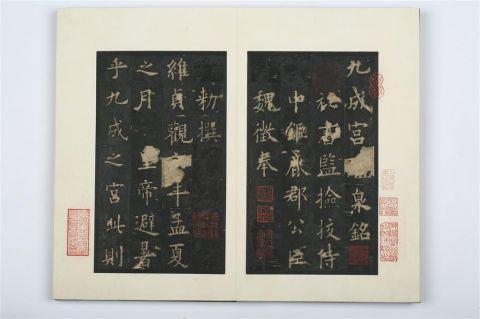 九成宮泉銘
祕書監撿挍侍
中鉅鹿郡公臣
魏徵奉
勅撰
維貞觀年孟夏
之月皇帝避暑
乎九成之宮此則